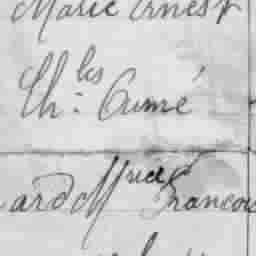 Marie Ernest
Ch.les Aimé
ard M.rice Francois